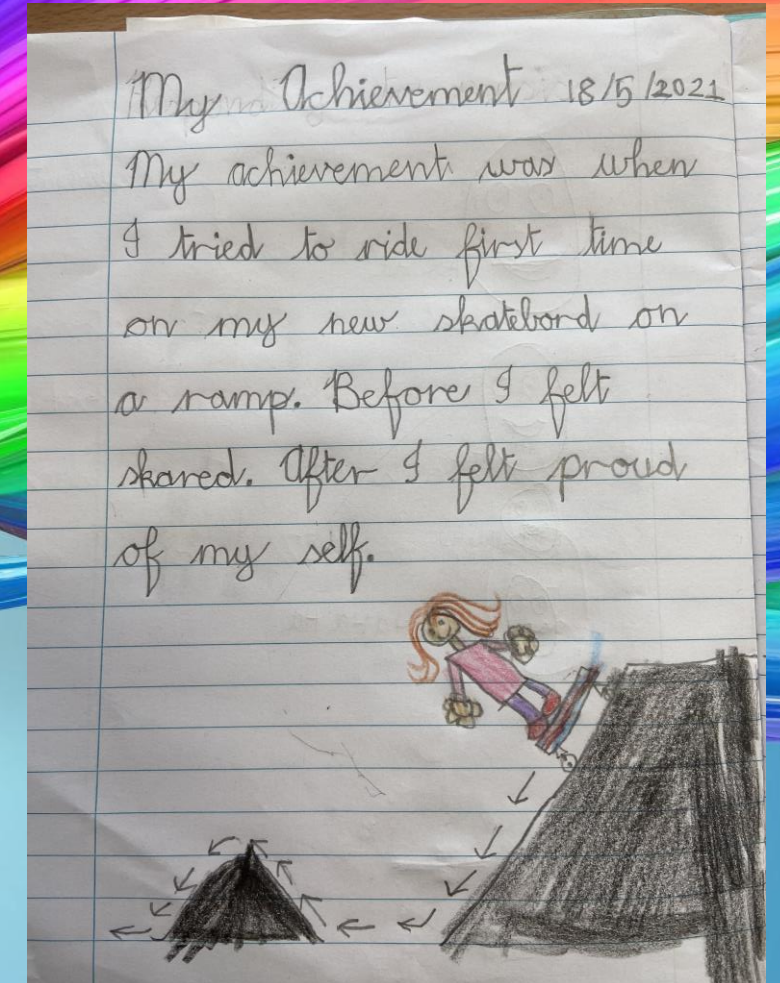 My Achievement 18/5/2021
My achievement was when
I tried to ride first time
on my new skatebord on
a ramp. Before I felt
skared. After I felt proud
of my self.